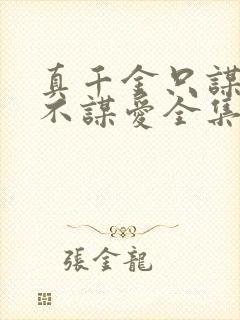 真千金只謀
不謀愛全集
張金龍